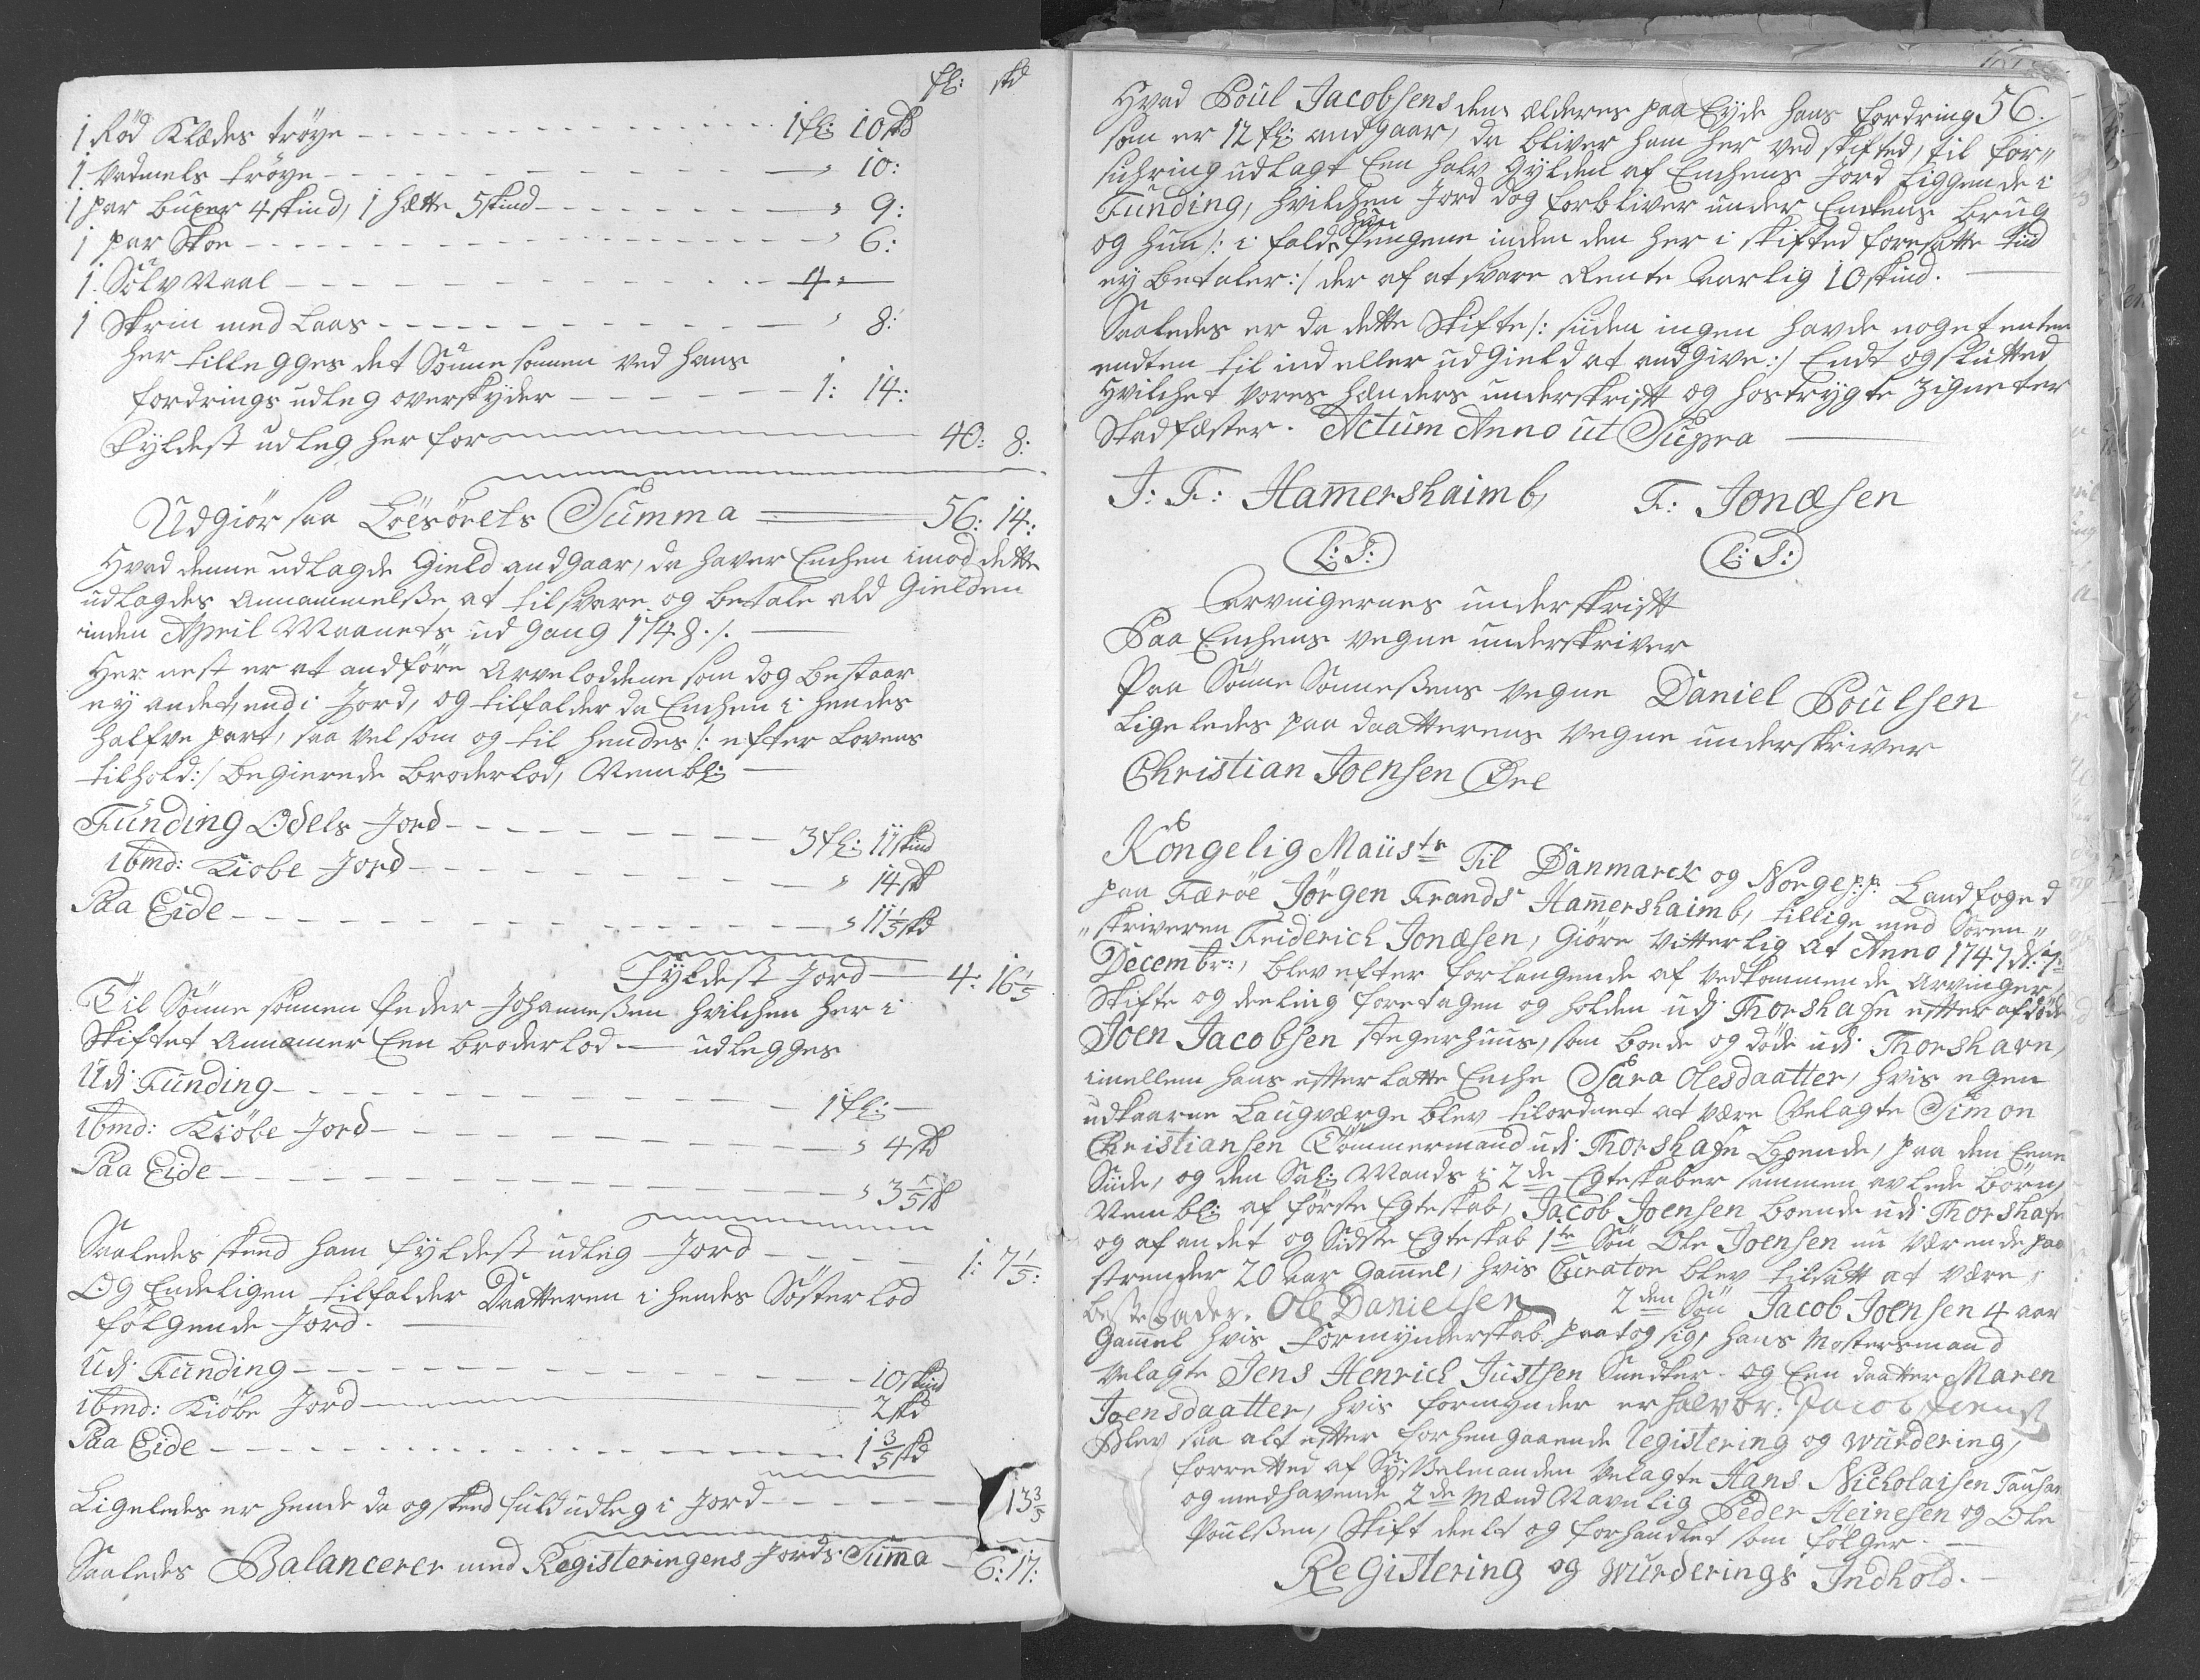 fl: skd
1 Rød Klædes trøye - - - 1 fl: 10 skd
1 Vadmels trøye - - - " 10:
1 par buxer 4 skind, 1 hætte 5 skind - - - " 9:
1 par Skoe - - - " 6:
1 Sölv Naal - - - 4 "
1 Skrin med Laas - - - " 8:
her tillegges det Sönne sönnen ved hans
fordrings udleg overskyder - - - 1: 14:
Fyldest udleg her for 40: 8:
Udgiör saa Löesörets Summa 56: 14:
Hvad denne udlagde Gield andgaar, da haver Enchen imod dette
udlagdes Annammelsse at tilsvare og betale ald Gielden
inden April Maanets udgang 1748 ./.
Her nest er at andføre Arveloddene som dog bestaar
ey andet, end i Jord, og tilfalder da Enchen i hendes
halfve part, saa vel som og til hendes /: efter Lovens
tilhold :/ begierede broderlod, Nembl:
Funding Odels Jord - - - 3 fl: 11 skind
ibmd: Kiøbe Jord - - - " 14 skd
Paa Eide - - - " 11 1/5 skd
Fyldest Jord 4: 16 1/5
Til Sönne sönnen Peder Johannessen hvilchen her i
Skiftet Annamer Een broderlod — udlegges
Udi Funding - - - 1 fl: —
ibmd: Kiöbe Jord - - - " 4 skd
Paa Eide - - - " 3 1/5 skd
Saaledes skeed ham fyldest udleg Jord - - - 1: 7 1/5:
Og Endeligen tilfalder Daatteren i hendes Söster lod
fölgende Jord.
Udi Funding - - - 10 skind
ibmd: Kiöbe Jord - - - 2 skd
Paa Eide - - - 1 3/5 skd
Ligeledes er hende da og skeed fuld udleg i Jord - - - 13 3/5
Saaledes Balancerer med Registeringens Jords Suma - 6: 17:
56.
Hvad Poul Jacobsens den ælderes paa Eyde hans fordring
som er 12 fl: andgaar, da bliver ham her ved skifted, til for„
suhring udlagt Een halv Gylden af Enchens Jord liggende i
Funding, hvilchen Jord dog forbliver under Enchens brug
og hun /: i fald hun pengene inden den her i skifted foresatte tiid
ey betaler :/ der af at svare Rente Aarlig 10 skind.
Saaledes er da dette Skifte /: siiden ingen havde noget enten
endten til ind eller udgield at andgive :/ Endt og slutted
hvilchet vores hænders underskrift og hostrygte Zigneter
Stadfæster. Actum Anno ut Supra
J: F: Hamershaimb, F: Jonæsen
L: S: L: S:
Arvingernes underskrift
Paa Enchens vegne underskriver
Paa Sönne Sönnessens Vegne Daniel Poulsen
Ligeledes paa daatterens Vegne underskriver
Christian Joensen Öre
Kongelig Maiiste Til Danmarck og Norge p:p: Landfoged
paa Færöe Jörgen Frands Hamershaimb, tillige med Soren„
„skriveren Friderich Jonæsen, Giöre Vitterlig At Anno 1747 d: 7de
Decembr:, blev efter forlangende af Vedkommende Arvinger,
Skifte og deeling foretagen og holden udi Thorshafn efter afdöde
Joen Jacobsen Stegerhuus, som boede og döde udi Thorshavn,
imellem hans efterlatte Enche Sara Olesdaatter, hvis egen
udkaarne Laugværge blev tilordnet at være Velagte Simon
Christiansen Tömmermand udi Thorshafn boende, paa den Eene
Siide, og den Sal: Mands i 2de Egteskaber sammen avlede börn,
Nembl: af förste Egteskab, Jacob Joensen boende udi Thorshafn
og af andet og Sidste Egteskab 1te Sön Ole Joensen nu værende paa
strender 20 aar Gamel, hvis Curator blev tilsatt at være,
beste fader Ole Danielsen 2den Sön Jacob Joensen 4 aar
Gamel hvis Formynderskab paatog sig, hans Mostersmand
Velagte Jens Henrich Justsen Snedker - og Een daatter Maren
Joensdaatter, hvis formynder er halvbr: Jacob Joens:
Blev saa alt efter forhengaaende Registering og wurdering,
forretted af Sysselmanden Velagte Hans Nicholaisen Tausan
og medhavende 2de Mænd Navnlig Peder Heinesen og Ole
Poulssen, Skift deelt og forhandlet som fölger.
Registering og wurderings Indhold.